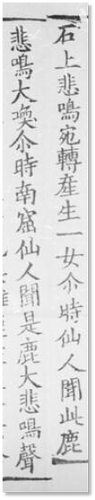 石上悲鳴宛轉産生一女尒時仙人聞此鹿
悲鳴大喚尒時南窟仙人聞是鹿大悲鳴聲